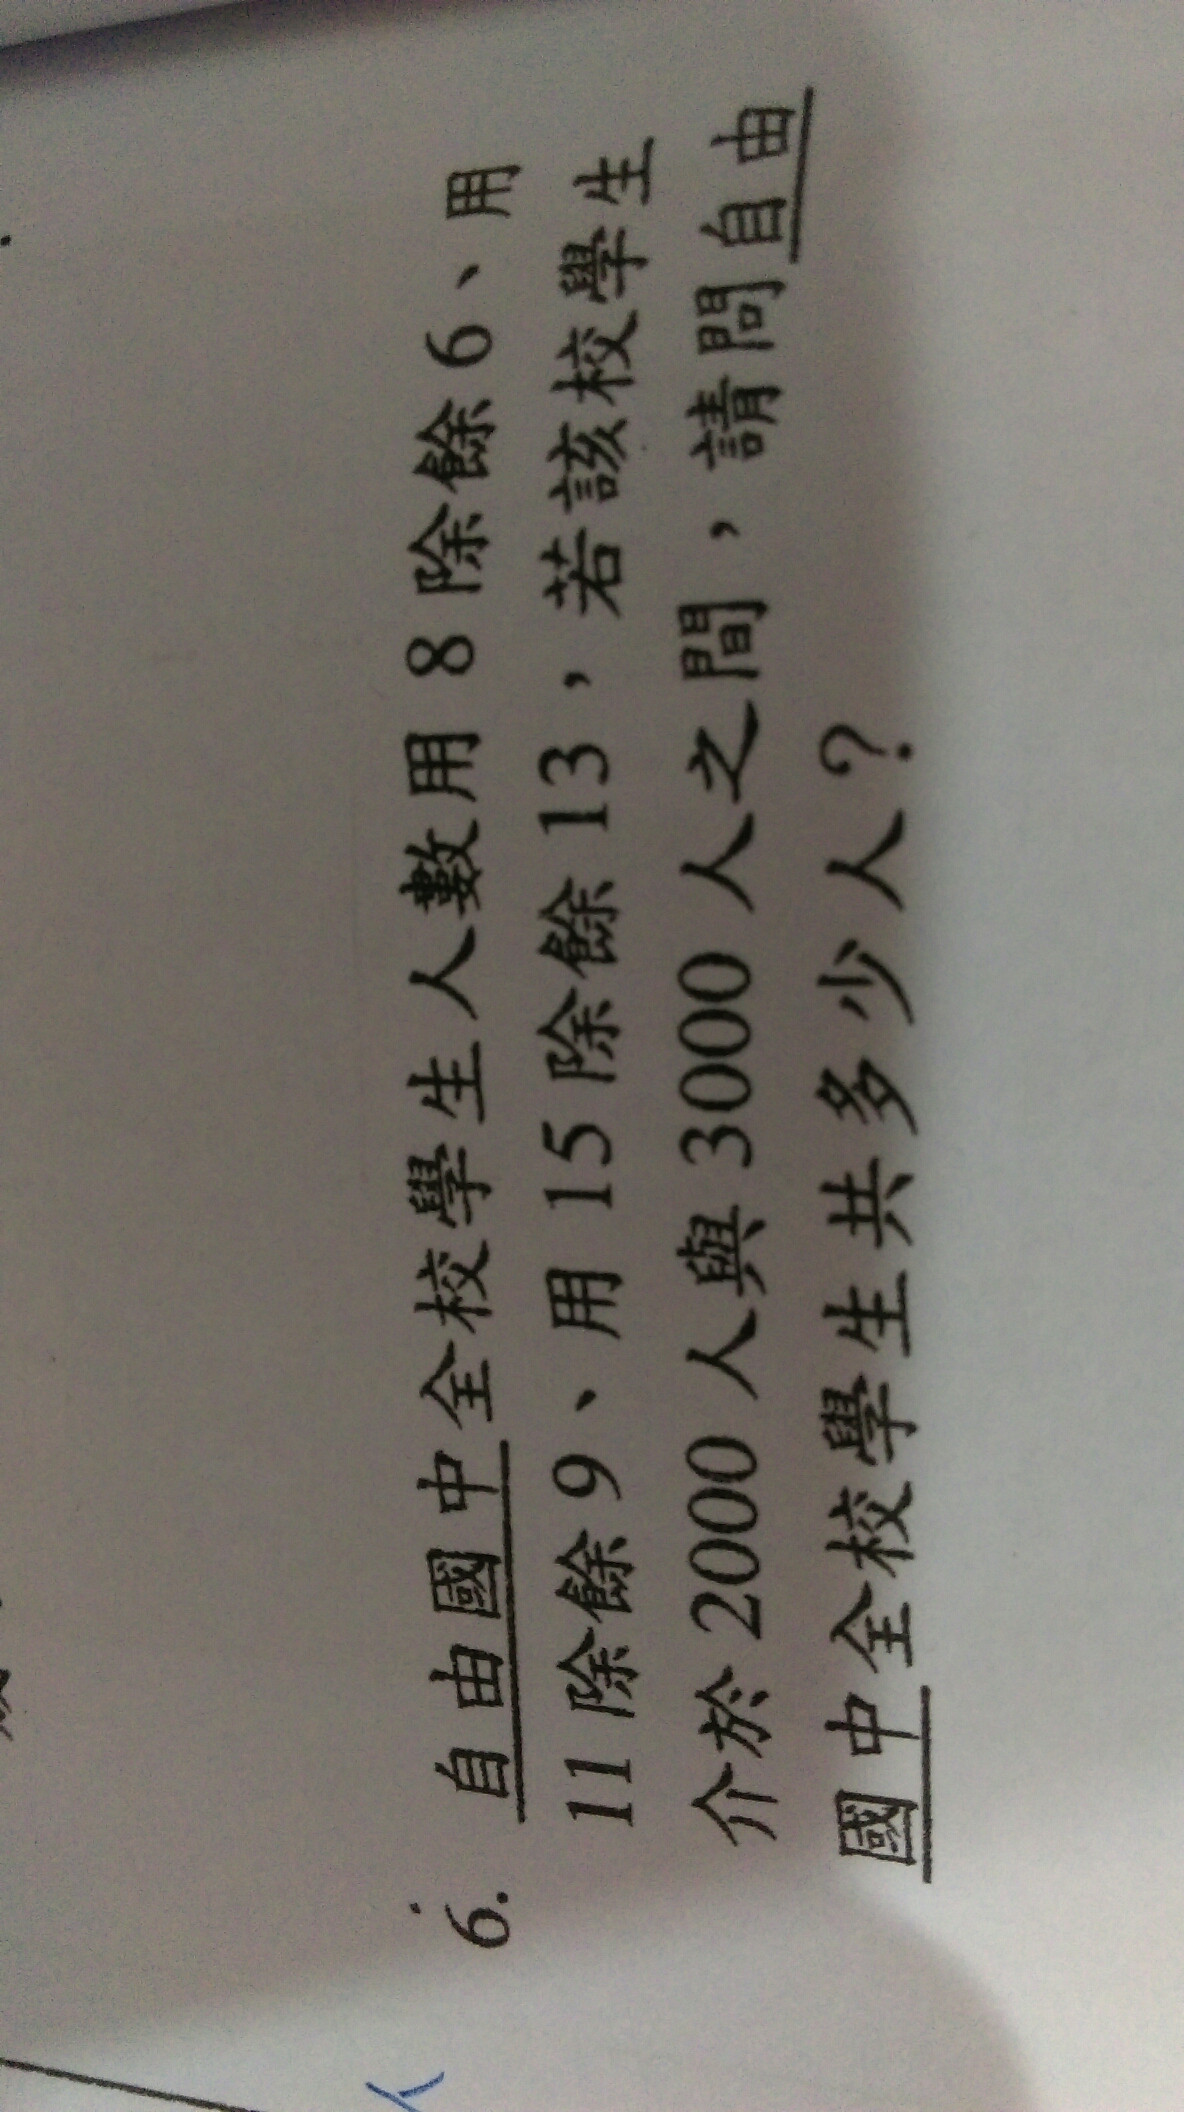 6. 自由國中全校學生人數用 8 除餘 6、用
11 除餘 9、用 15 除餘 13，若該校學生
介於 2000 人與 3000 人之間，請問自由
國中全校學生共多少人？